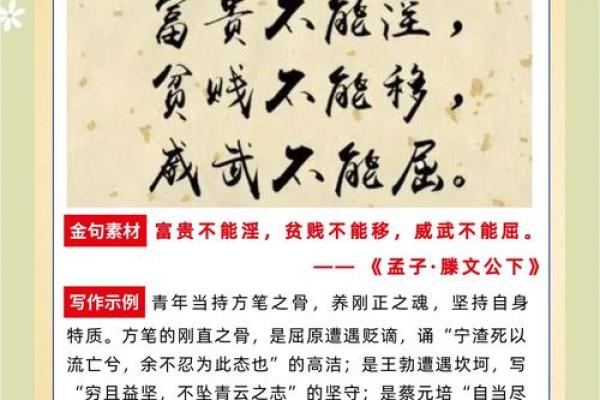 富贵不能淫，
贫贱不能移，
威武不能屈。
金句素材 富贵不能淫，贫贱不能移，威武不能屈。
——《孟子·滕文公下》
写作示例 青年当持方笔之骨，养刚正之魂，坚持自身
特质。方笔的刚直之骨，是屈原遭遇贬谪，诵“宁渣死以
流亡兮，余不忍为此态也”的高洁；是王勃遭遇坎坷，写
“穷且益坚，不坠青云之志”的坚守；是蔡元培“自当尽